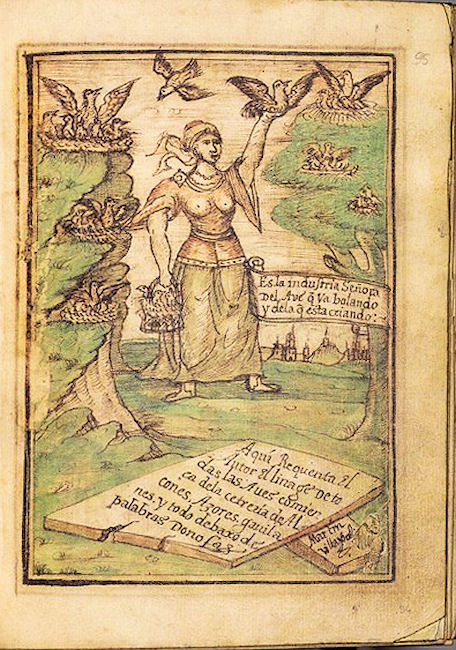 95
Es la industria Señora
Del Ave q̃ va bolando
y dela q̃ esta criando:
Aquí Requenta El
Autor El linage De to
das las Aues comier
ca dela cetreria de Al
cones, Açores, gauila
nes, y todo debaxo d
palabras Donosas